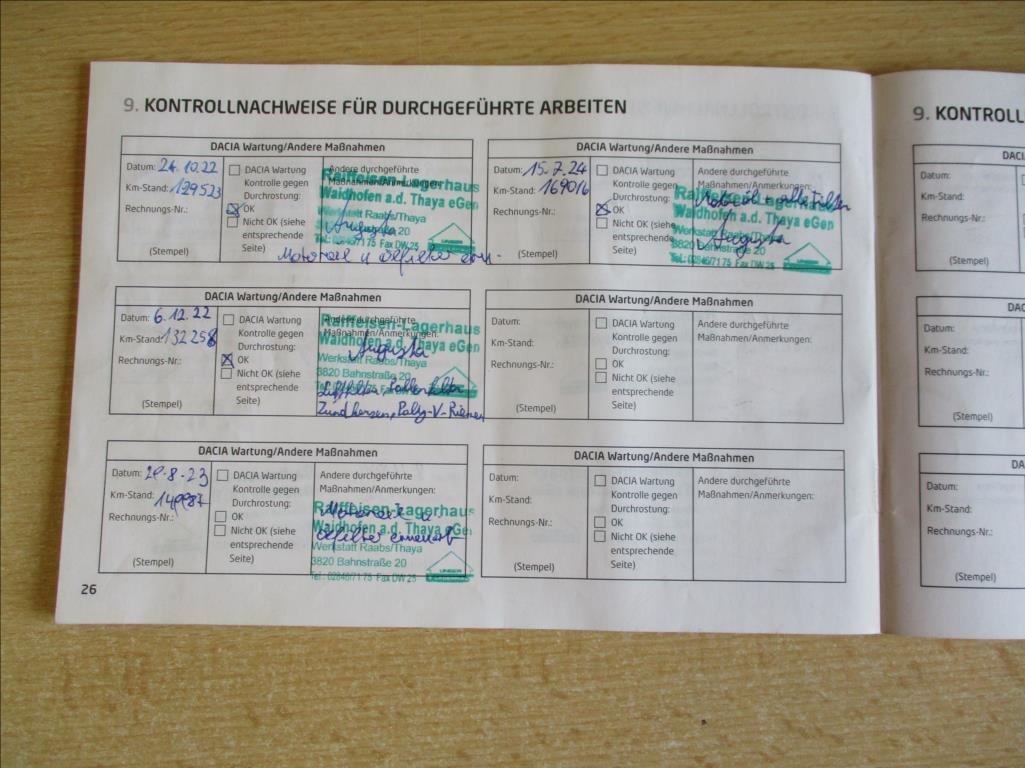 9. KONTROLLNACHWEISE FÜR DURCHGEFÜHRTE ARBEITEN
DACIA Wartung/Andere Maßnahmen
Datum: 24.10.22
Km-Stand: 129523
Rechnungs-Nr.:
(Stempel)
DACIA Wartung
Kontrolle gegen
Durchrostung:
OK
Nicht OK (siehe
entsprechende
Seite)
Andere durchgeführte
Maßnahmen/Anmerkungen:
Raiffeisen-Lagerhaus
Waidhofen a.d. Thaya eGen
Werkstatt Raabs/Thaya
Tel.: 02846/71 75 Fax DW 25
Motoroel u Oelfilter ern.
DACIA Wartung/Andere Maßnahmen
Datum: 6.12.22
Km-Stand: 132258
Rechnungs-Nr.:
(Stempel)
DACIA Wartung
Kontrolle gegen
Durchrostung:
OK
Nicht OK (siehe
entsprechende
Seite)
Andere durchgeführte
Maßnahmen/Anmerkungen:
Raiffeisen-Lagerhaus
Waidhofen a.d. Thaya eGen
Werkstatt Raabs/Thaya
3820 Bahnstraße 20
Luftfilter, Pollenfilter
Zündkerzen, Poly-V-Riemen
DACIA Wartung/Andere Maßnahmen
Datum: 29.8.23
Km-Stand: 149987
Rechnungs-Nr.:
(Stempel)
DACIA Wartung
Kontrolle gegen
Durchrostung:
OK
Nicht OK (siehe
entsprechende
Seite)
Andere durchgeführte
Maßnahmen/Anmerkungen:
Raiffeisen-Lagerhaus
Motoroel u
Waidhofen a.d. Thaya eGen
Oelfilter erneuert
Werkstatt Raabs/Thaya
3820 Bahnstraße 20
Tel.: 02846/71 75 Fax DW 25
UNSER
26
DACIA Wartung/Andere Maßnahmen
Datum: 15.7.24
Km-Stand: 169016
Rechnungs-Nr.:
(Stempel)
DACIA Wartung
Kontrolle gegen
Durchrostung:
OK
Nicht OK (siehe
entsprechende
Seite)
Andere durchgeführte
Maßnahmen/Anmerkungen:
Motoröl + alle Filter
Raiffeisen-Lagerhaus
Waidhofen a.d. Thaya eGen
Werkstatt Raabs/Thaya
3820 Bahnstraße 20
Tel.: 02846/71 75 Fax DW 25
DACIA Wartung/Andere Maßnahmen
Datum:
Km-Stand:
Rechnungs-Nr.:
(Stempel)
DACIA Wartung
Kontrolle gegen
Durchrostung:
OK
Nicht OK (siehe
entsprechende
Seite)
Andere durchgeführte
Maßnahmen/Anmerkungen:
DACIA Wartung/Andere Maßnahmen
Datum:
Km-Stand:
Rechnungs-Nr.:
(Stempel)
DACIA Wartung
Kontrolle gegen
Durchrostung:
OK
Nicht OK (siehe
entsprechende
Seite)
Andere durchgeführte
Maßnahmen/Anmerkungen:
9. KONTROLL
DACI
Datum:
Km-Stand:
Rechnungs-Nr.:
(Stempel)
DAC
Datum:
Km-Stand:
Rechnungs-Nr.:
(Stempel)
DA
Datum:
Km-Stand:
Rechnungs-Nr.:
(Stempel)